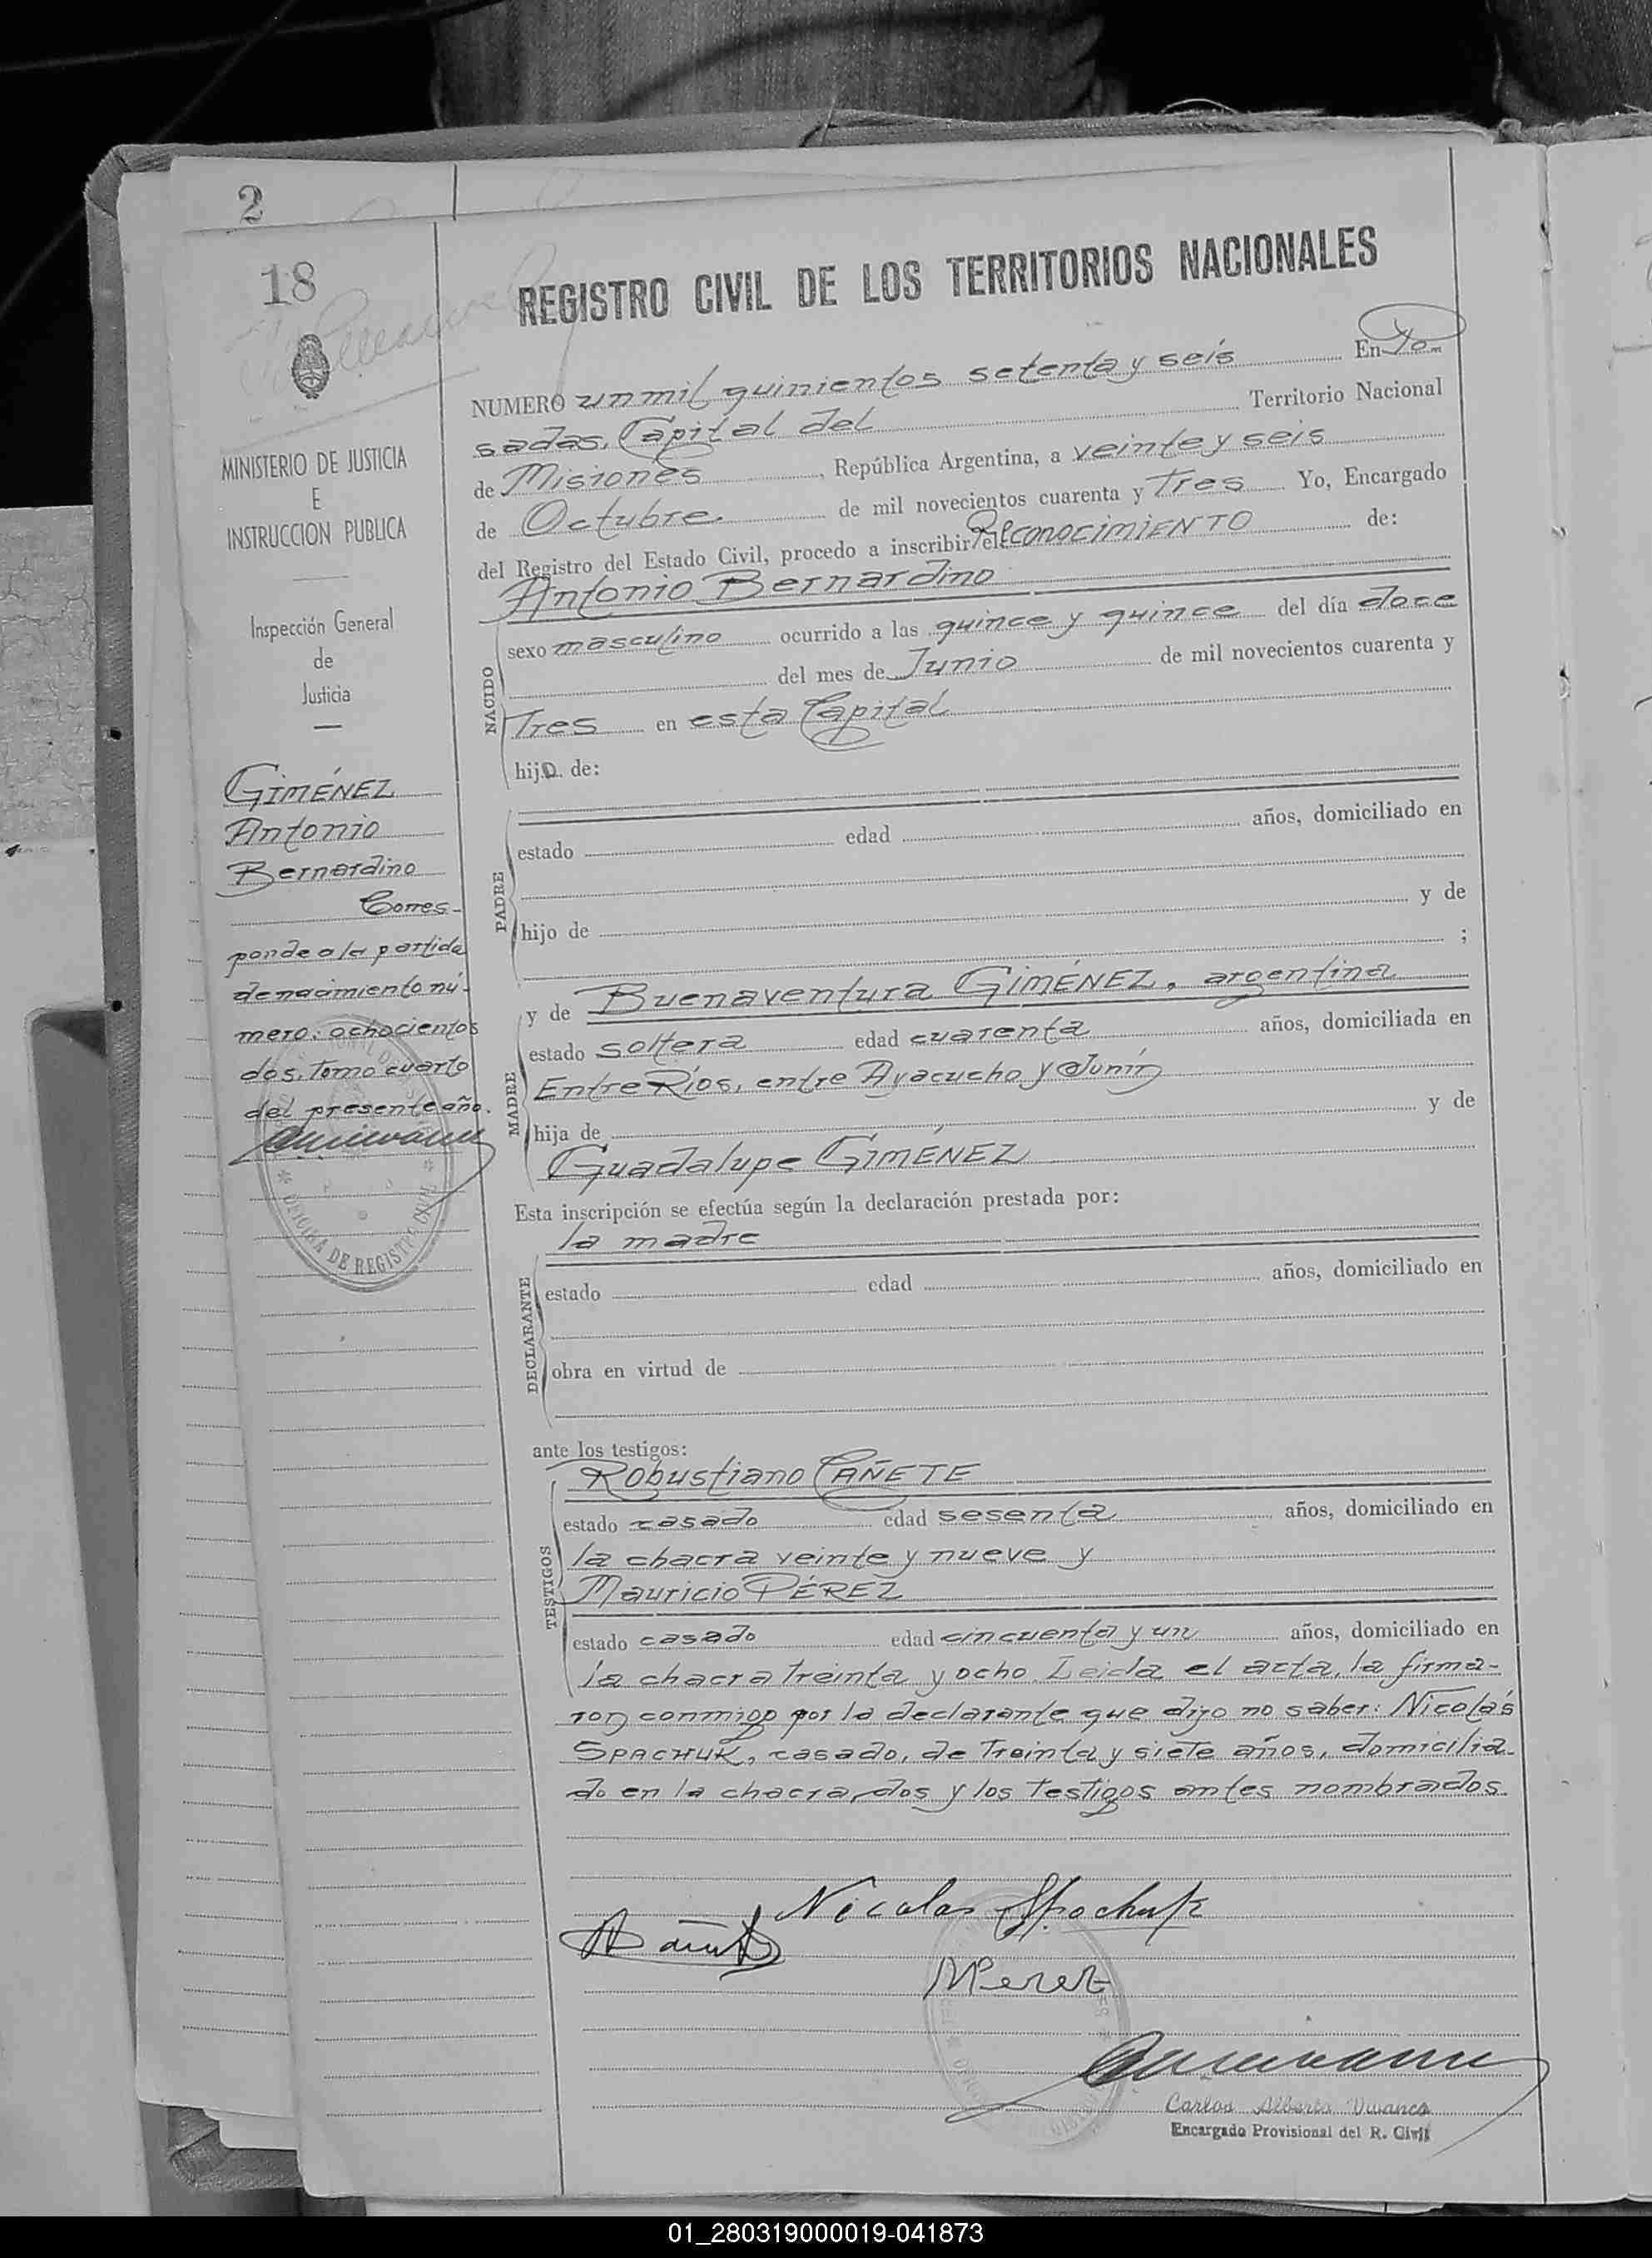 2
18
MINISTERIO DE JUSTICIA
E
INSTRUCCION PUBLICA
Inspección General
de
Justicia
GIMÉNEZ
Antonio
Bernardino
Corres-
ponde a la partida
de nacimiento nú-
mero: ochocientos
dos. Tomo cuarto
del presente año.
OFICINA DE REGISTRO CIVIL
REGISTRO CIVIL DE LOS TERRITORIOS NACIONALES
NUMERO un mil quinientos setenta y seis En Po
sadas, Capital del Territorio Nacional
de Misiones, República Argentina, a veinte y seis
de Octubre de mil novecientos cuarenta y Tres Yo, Encargado
del Registro del Estado Civil, procedo a inscribir el RECONOCIMIENTO de:
Antonio Bernardino
NACIDO
sexo masculino ocurrido a las quince y quince del día doce
del mes de Junio de mil novecientos cuarenta y
Tres en esta Capital
hijo de:
PADRE
estado edad años, domiciliado en
hijo de y de
;
MADRE
y de Buenaventura GIMÉNEZ, argentina
estado soltera edad cuarenta años, domiciliada en
Entre Ríos, entre Ayacucho y Junín
hija de y de
Guadalupe GIMÉNEZ
Esta inscripción se efectúa según la declaración prestada por:
la madre
DECLARANTE
estado edad años, domiciliado en
obra en virtud de
ante los testigos:
TESTIGOS
Robustiano CAÑETE
estado casado edad sesenta años, domiciliado en
la chacra veinte y nueve y
Mauricio PÉREZ
estado casado edad cincuenta y un años, domiciliado en
la chacra treinta y ocho. Leida el acta, la firma-
ron conmigo por la declarante que dijo no saber: Nicolás
SPACHUK, casado, de Treinta y siete años, domicilia-
do en la chacra, dos y los testigos antes nombrados.
Nicolas Spachuk
MPerez
Carlos Alberto Vivanco
Encargado Provisional del R. Civil
01_280319000019-041873